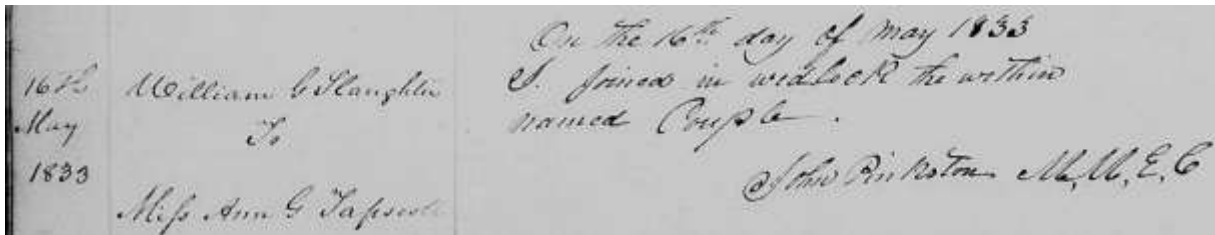 16th
May
1833
William G Slaughter
To
Miss Ann G Tapscott
On the 16th day of May 1833
I. joined in wedlock the within
named Couple.
John Pinkston M, M, E, C